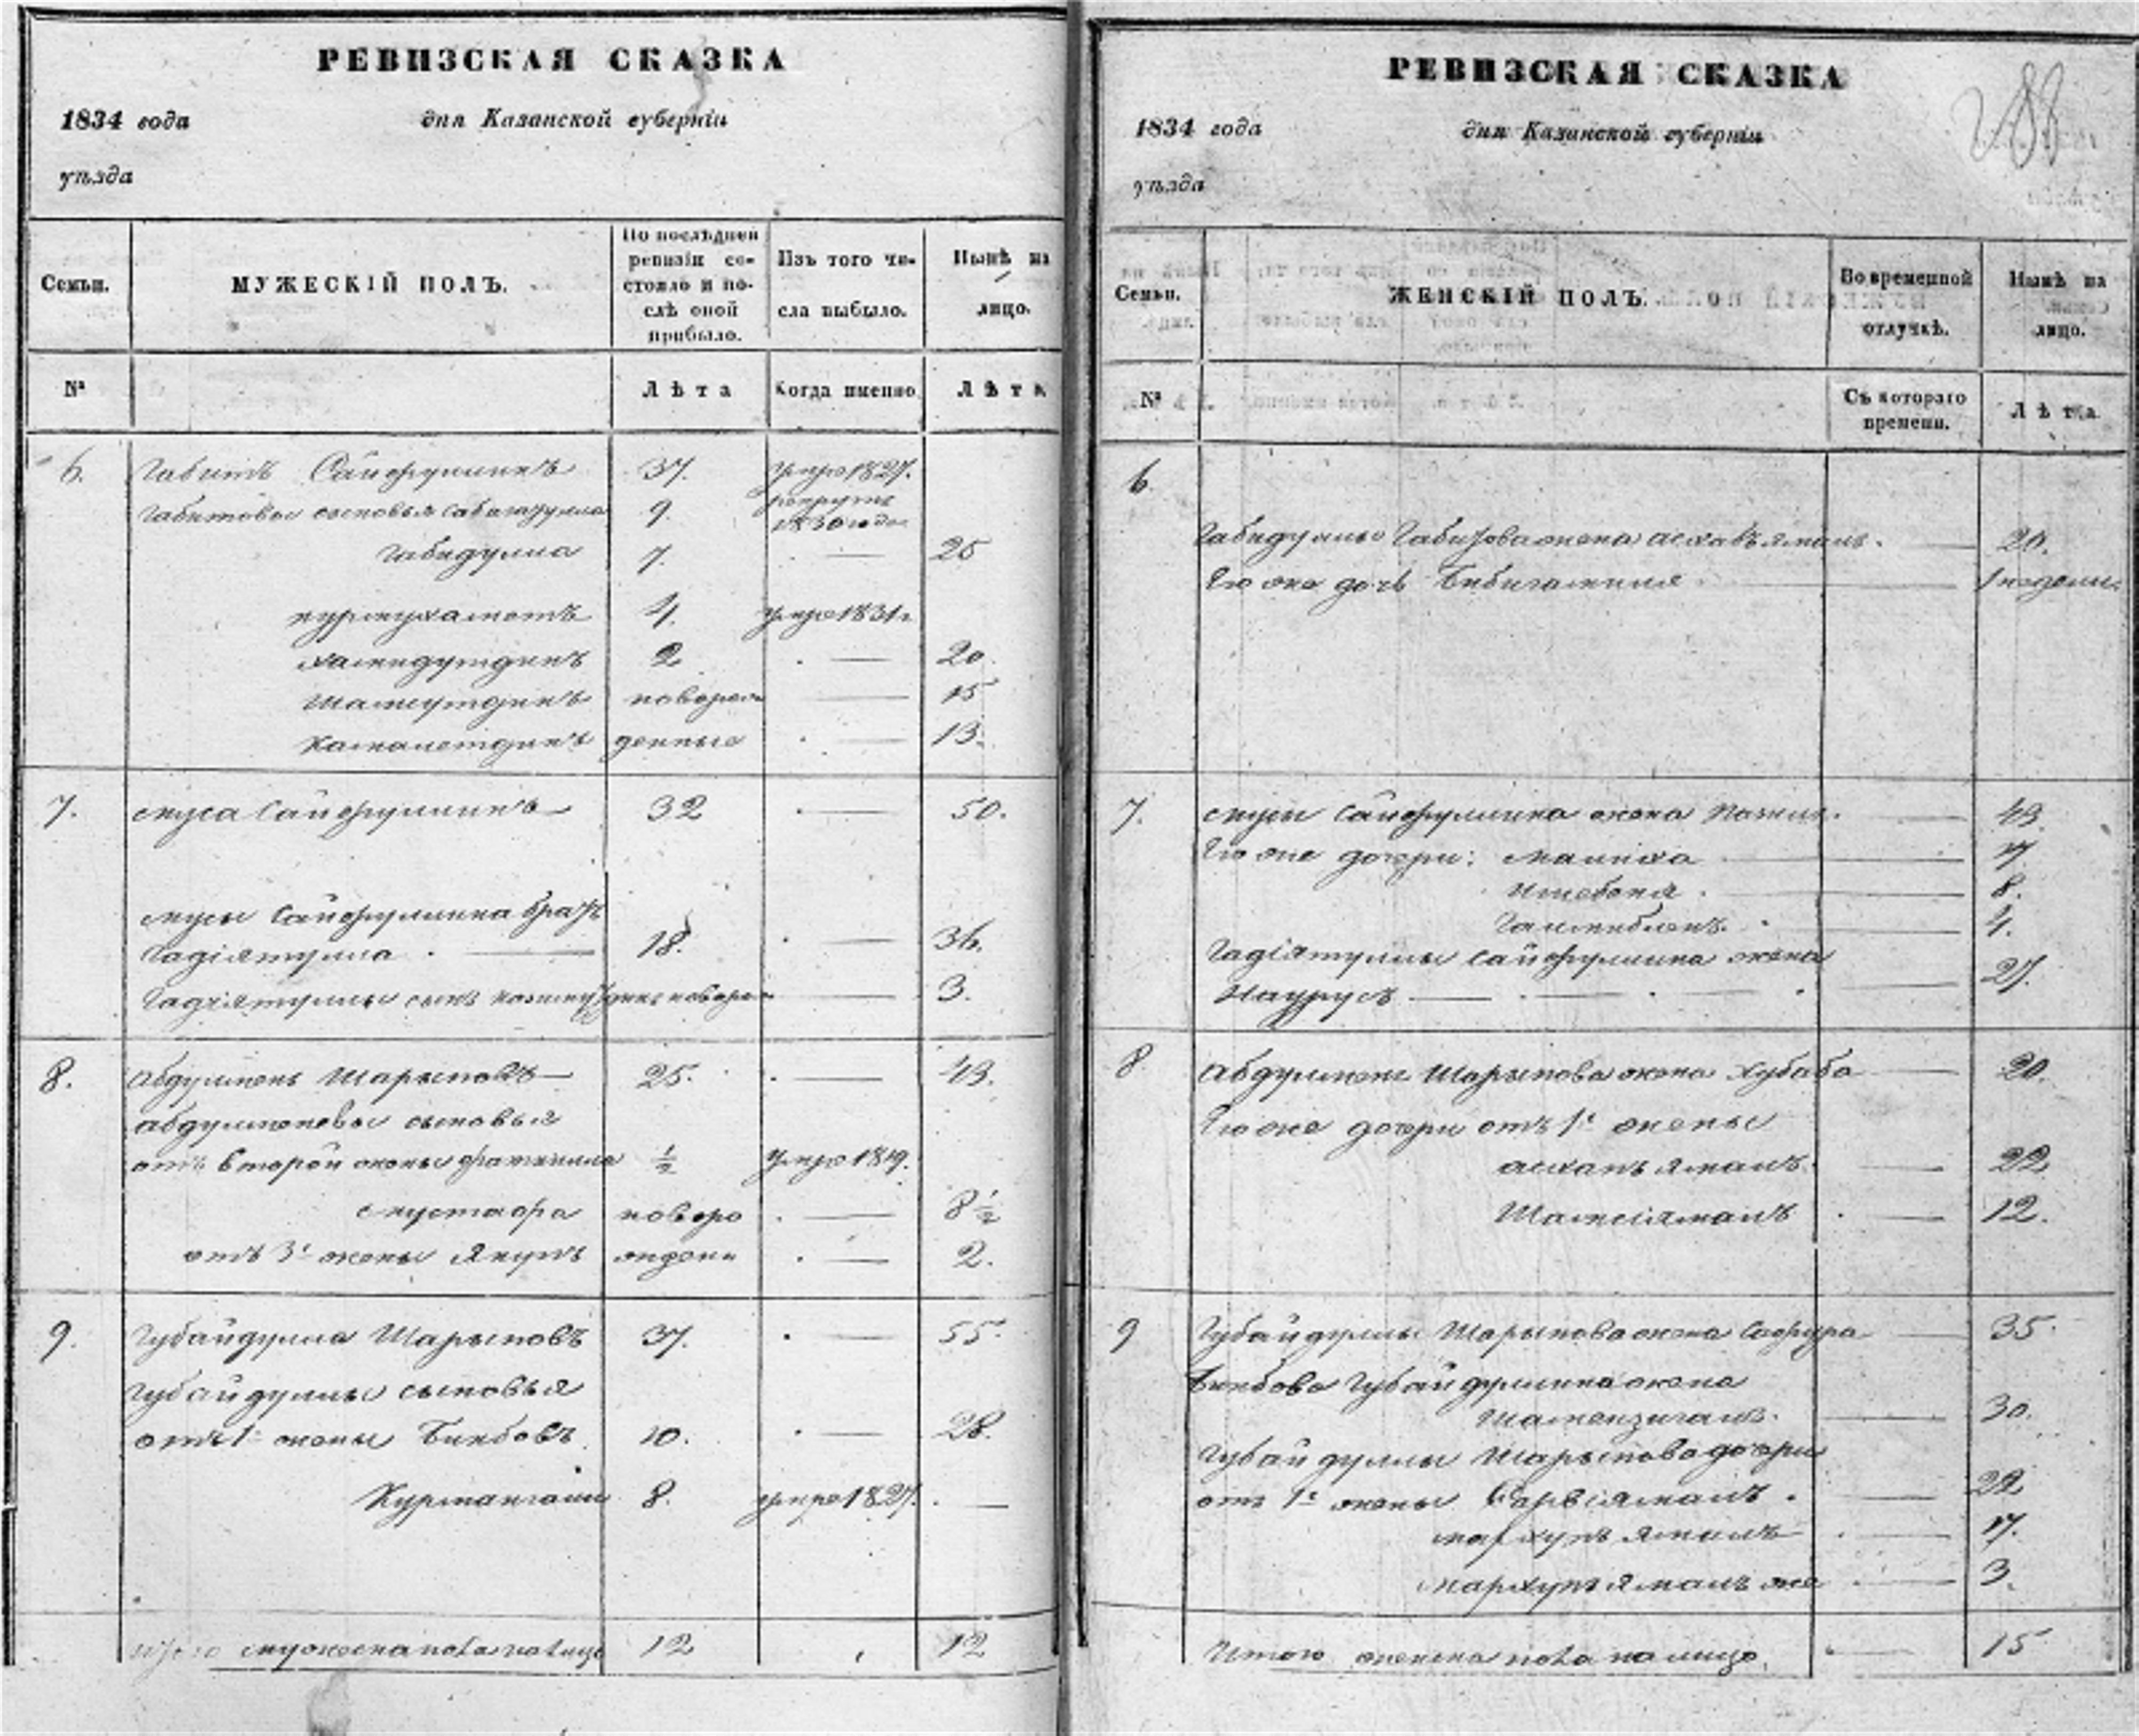 РЕВИЗСКАЯ СКАЗКА
1834 года дня Казанской губерніи
уѣзда
Семьи. МУЖЕСКІЙ ПОЛЪ. По послѣдней ревизіи состояло и послѣ оной прибыло. Изъ того числа выбыло. Нынѣ на лицо.
№ Лѣта Когда именно Лѣта
6. Габитъ Сайфуллинъ 37. умре 1827.
Габитовы сыновья 9. рекрутъ 1830 года
Габидулла 7. — 25
нурмухаметъ 4. умре 1831 г
хамидутдинъ 2 — 20.
Шамсутдинъ новорож — 15
Камалетдинъ денные — 13.
7. муса Сайфуллинъ 32 — 50.
мусы Сайфуллина братъ
Гадіятулла 18. — 36.
Гадіятуллы сынъ новорож — 3.
8. Абдулменъ Шарыповъ 25. — 43.
абдулменевы сыновья
отъ второй жены 1/2 умре 1819.
мустафа новоро — 8 1/2
отъ 3й жены Якупъ ждены — 2.
9. Губайдулла Шарыповъ 37. — 55.
Губайдуллы сыновья
отъ 1й жены Бикбовъ 10. — 28.
Курмангали 8. умре 1827. —
Итого мужеска пола налицо 12 12
РЕВИЗСКАЯ СКАЗКА
1834 года дня Казанской губерніи
уѣзда
Семьи. ЖЕНСКІЙ ПОЛЪ. Во временной отлучкѣ. Нынѣ на лицо.
№ Съ котораго времени. Лѣта
6.
Габидуллы Габитова жена — 20.
Его же дочь Бибигамиля — 1 недели
7. мусы Сайфуллина жена — 43.
Его же дочери: малиха — 17
— 8.
— 4.
Гадіятуллы Сайфуллина жена
Наурусъ — 27.
8. Абдулмена Шарыпова жена Хубаба — 20.
Его же дочери отъ 1й жены
асхапъямалъ — 22
Шамсіямалъ — 12.
9 Губайдуллы Шарыпова жена Сафура 35.
Бикбова Губайдуллина жена
— 30.
Губайдуллы Шарыпова дочери
отъ 1й жены Сарвіямалъ — 22
мархупъямалъ — 17.
мархупъямалъ же — 3.
Итого женска пола налицо. — 15